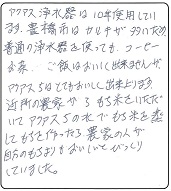 アクアス浄水器は10年使用してい
ます。豊橋市はカルキが多いため
普通の浄水器を使っても、コーヒー
お茶、ご飯はおいしく出来ませんが
アクアスはとてもおいしく出来上ります。
近所の農家からもち米をいただ
いてアクアスの水でもち米を蒸
してもちを作ったら農家の人が
自分のもちよりおいしいとびっくり
していました。